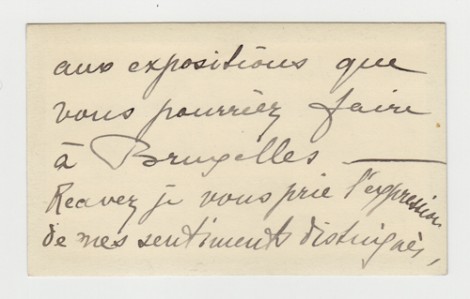 aux expositions que
vous pourriez faire
à Bruxelles —
Recevez je vous prie l'expression
de mes sentiments distingués,